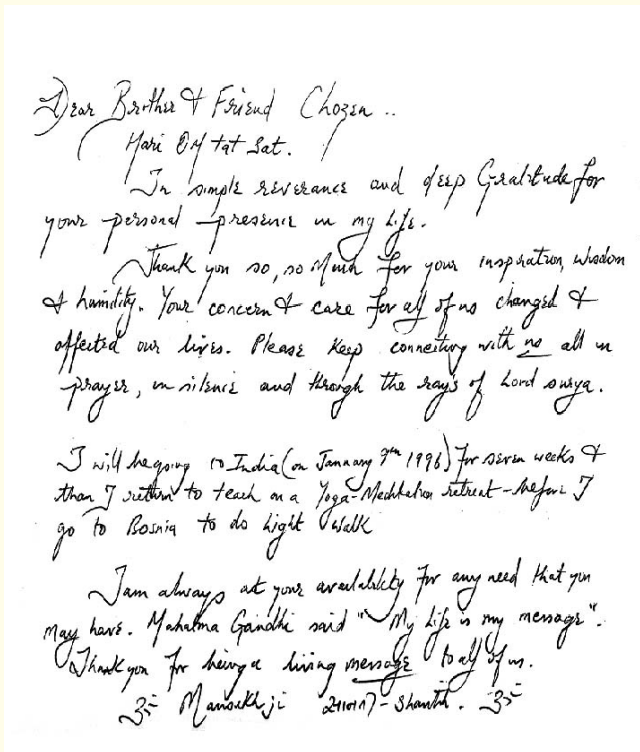 Dear Brother & Friend Chozen ..
Hari OM tat Sat.
In simple reverance and deep Gratitude for
your personal presence in my life.
Thank you so, so Much for your inspiration, wisdom
& humility. Your concern & care for all of us changed &
affected our lives. Please Keep connecting with us all in
prayer, in silence and through the rays of Lord surya.
I will be going to India (on January 9th 1996) for seven weeks &
than I return to teach on a Yoga-Meditation retreat - before I
go to Bosnia to do Light Walk
I am always at your availability for any need that you
may have. Mahatma Gandhi said " My Life is my message".
Thank you for being a living message to all of us.
ॐ Mansukhji शान्ति - Shanti. ॐ